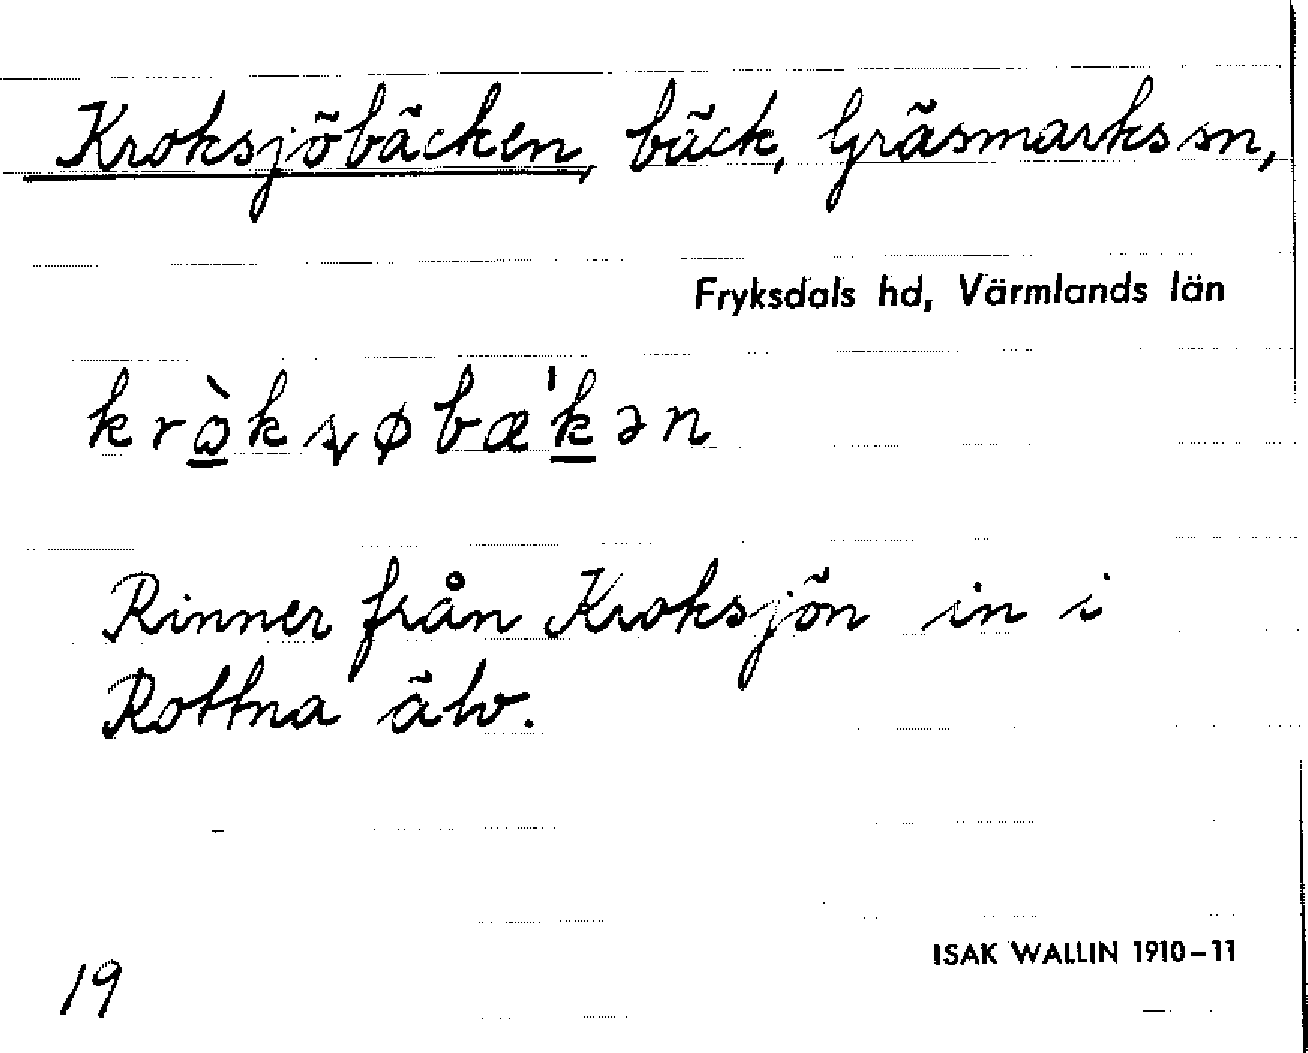 Kroksjöbäcken, bäck, Gräsmarks sn,
Fryksdals hd, Värmlands län
Rinner från Kroksjön in i
Rottna älv.
ISAK WALLIN 1910-11
19